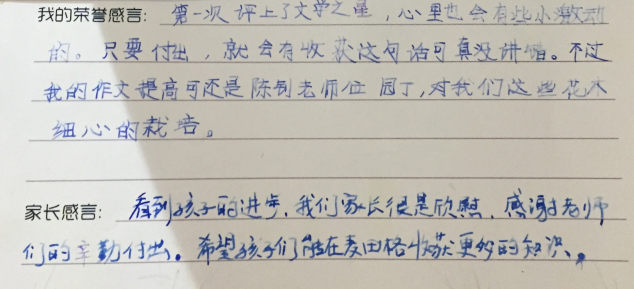 我的荣誉感言：第一次评上了文学之星，心里也会有些小激动
的。只要付出，就会有收获这句话可真没讲错。不过
我的作文提高可还是陈创老师位园丁，对我们这些花木
细心的栽培。
家长感言：看到孩子的进步，我们家长很是欣慰，感谢老师
们的辛勤付出。希望孩子们能在麦田格收获更多的知识。